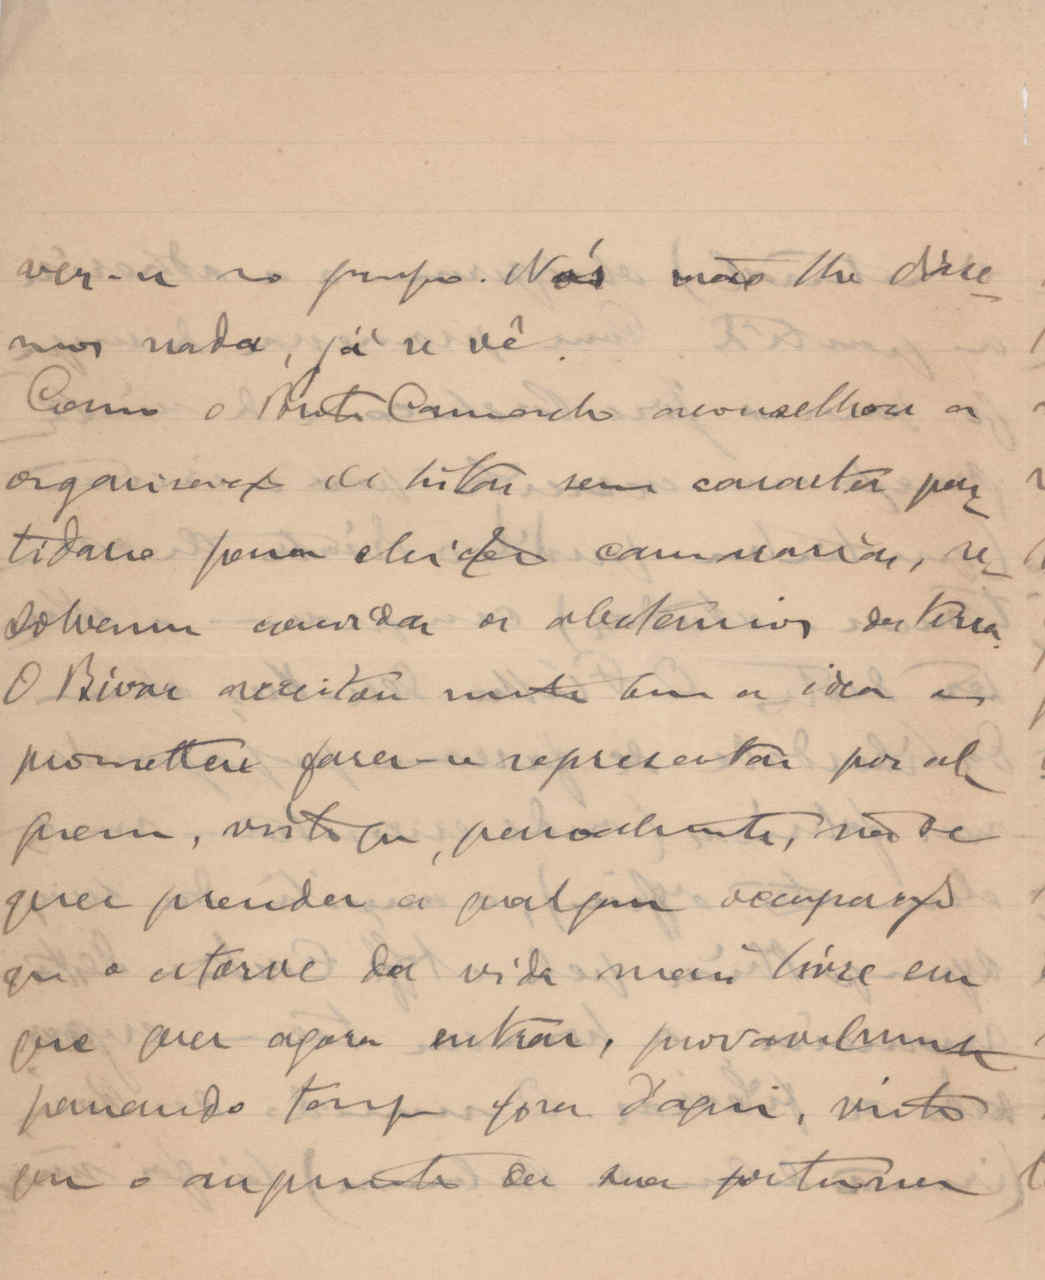 ver-se no grupo. Nós não lhe disse-
mos nada, já se vê.
Como o Brito Camacho aconselhou a
organisação de listas sem caracter par-
tidario para eleições camararias, re-
solveram convidar os abstemios da terra.
O Bivar acceitou muito bem a idea e
prometteu fazer-se representar por al-
guem, visto que, pessoalmente, não se
quer prender a qualquer occupação
que o estorve da vida mais livre em
que quer agora entrar, provavelmente
passando tempo fora d'aqui, visto
que o augmento da sua fortuna